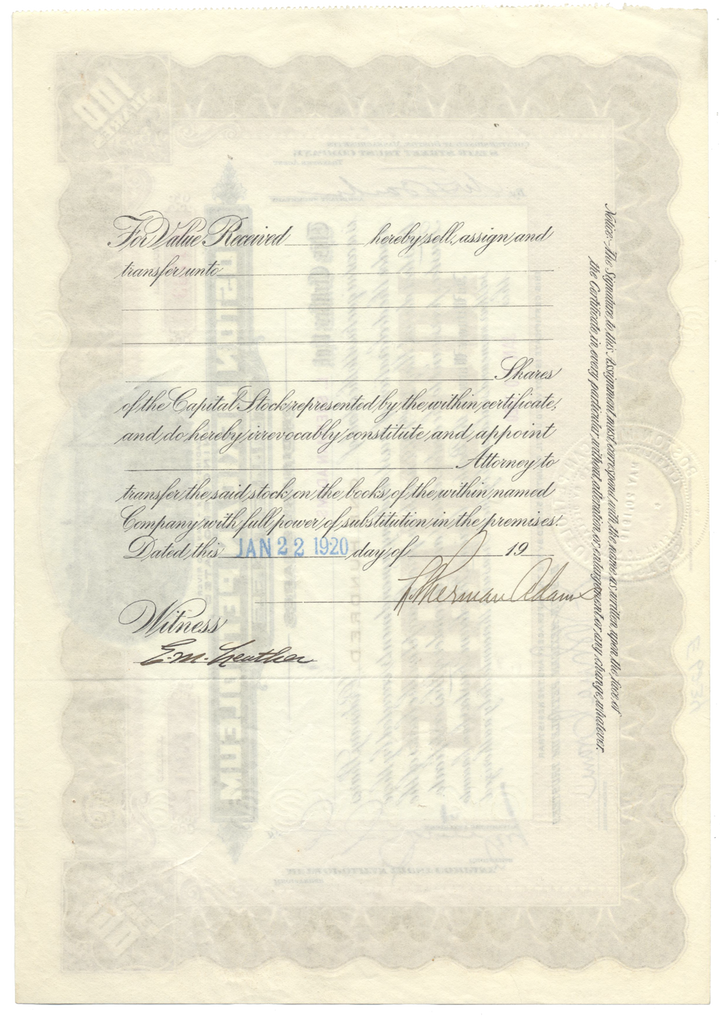 For Value Received hereby sell, assign and
transfer unto
Shares
of the Capital Stock represented by the within certificate,
and do hereby irrevocably constitute and appoint
Attorney, to
transfer the said stock on the books of the within named
Company with full power of substitution in the premises.
Dated, this JAN 22 1920 day of 19
Sherman Adams
Witness
E. M.
Notice:-The Signature to this Assignment must correspond with the name as written upon the face of
the Certificate in every particular without alteration or enlargement or any change whatever.